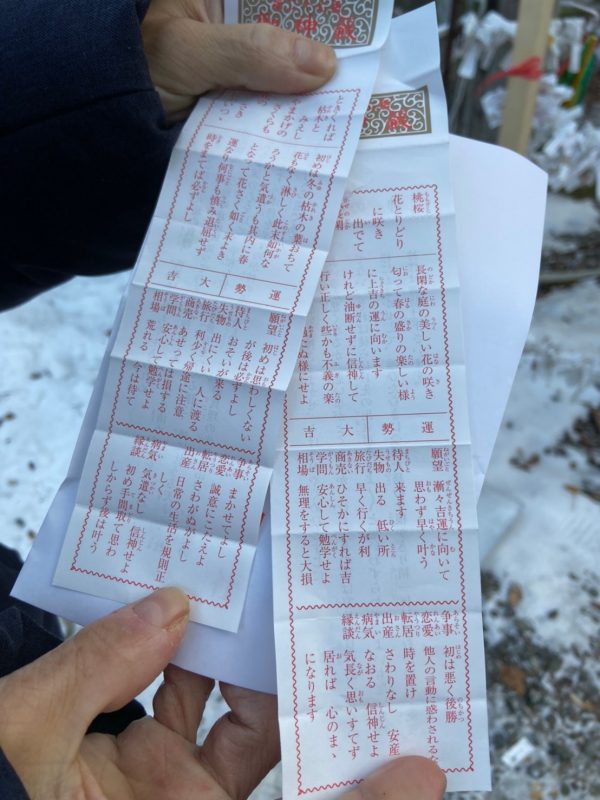 ときくれば
枯木と
みえし
やまかげの
さくらも
さき
いつゝ
初めは冬の枯木の葉おちて
花もなく淋しく此末如何な
ろうかと気遣うも其内に春
となって花さく如くよき
運なり何事も慎み退屈せず
時をまてば必ずよし
運勢 大吉
願望 初めは思わしくない
が後は必ずよし
待人 おそいが来る
失物 出にくい 人に渡る
旅行 利少く帰途に注意
商売 あせっては損する
学問 安心して勉学せよ
相場 荒れる 今は待て
争事 まかせてよし
恋愛 誠意にこたえよ
転居 さわがぬがよし
出産 日常の生活を規則正
しく
病気 気遣なし 信神せよ
縁談 初め手間取て思わ
しからず後は叶う
桃桜
花とりどり
に咲き
出でて
長閑な庭の美しい花の咲き
匂って春の盛りの楽しい様
に上吉の運に向います
けれど油断せずに信神して
行い正しく些かも不義の楽
にぬ様にせよ
運勢 大吉
願望 漸々吉運に向いて
思わず早く叶う
待人 来ます
失物 出る 低い所
旅行 早く行くが利
商売 ひそかにすれば吉
学問 安心して勉学せよ
相場 無理をすると大損
争事 初は悪く後勝
恋愛 他人の言動に惑わされるな
転居 時を置け
出産 さわりなし 安産
病気 なおる 信神せよ
縁談 気長く思いすてず
居れば 心のまゝ
になります